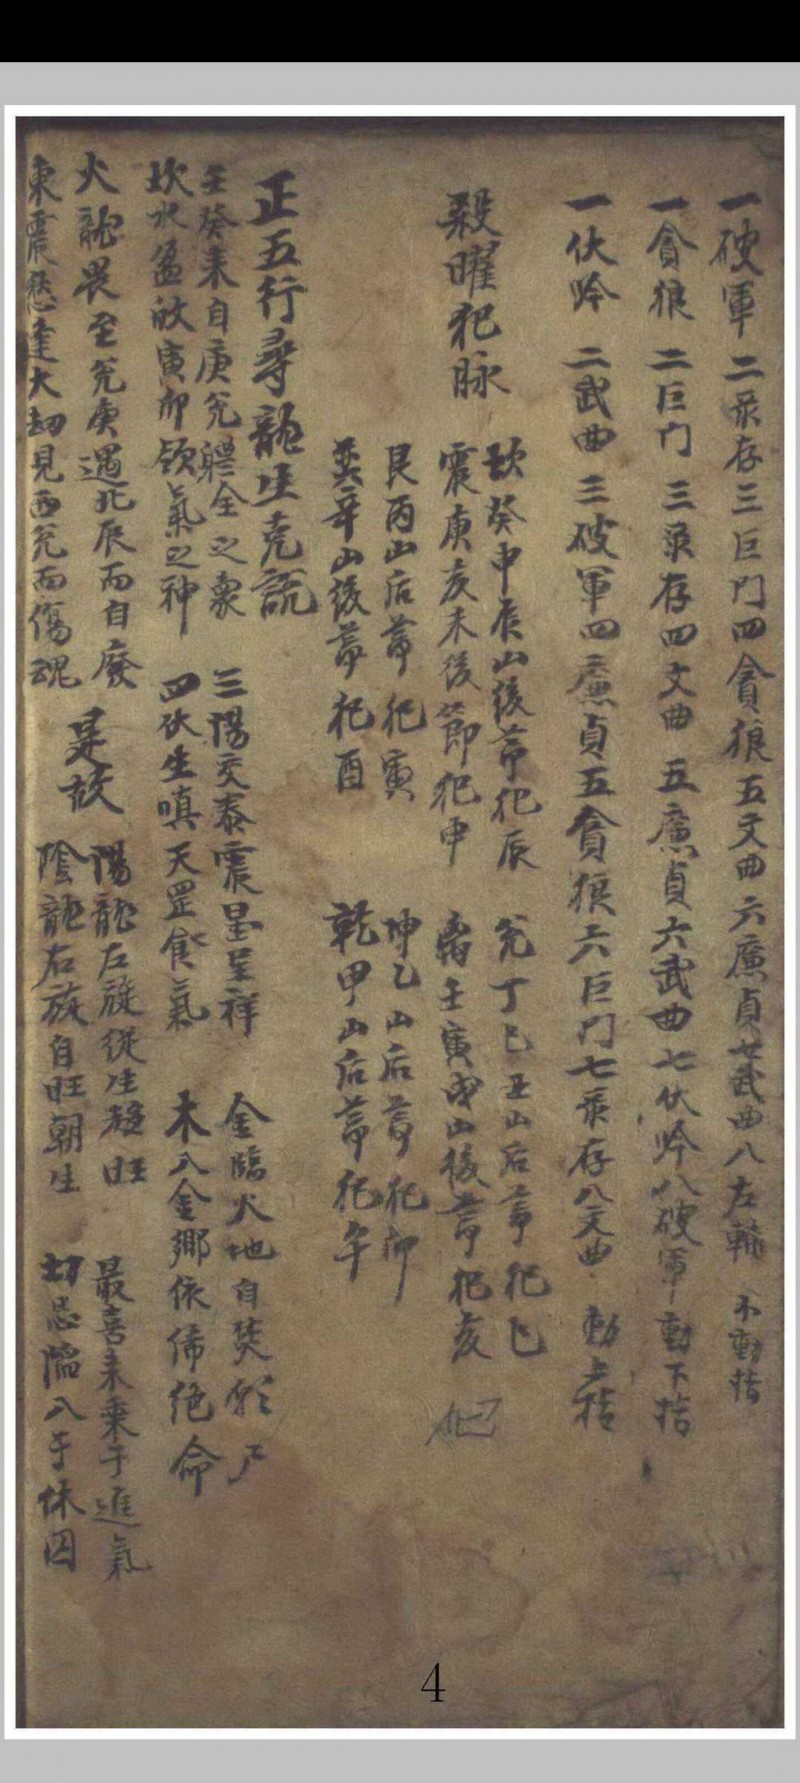 一破軍 二录存 三巨門 四貪狼 五文曲 六廉貞 七武曲 八左輔 不動指
一貪狼 二巨门 三录存 四文曲 五廉貞 六武曲 七伏吟 八破軍 動下指
一伏吟 二武曲 三破軍 四廉貞 五貪狼 六巨门 七录存 八文曲 動上指
殺曜犯脉
坎癸申辰山後莭犯辰 兊丁巳丑山后莭犯巳
震庚亥未後節犯申 离壬寅戌山後莭犯亥 犯
艮丙山后莭犯寅 坤乙山后莭犯卯
巽辛山後莭犯酉 乾甲山后莭犯午
正五行尋龍生克説
壬癸来自庚兊軆全之象 三陽交泰震呈祥 金臨火地自焚尸
坎水盈於寅卯領氣之神 四伏生嗔天罡食氣 木入金鄉依俙絶命
火龍畏至兊庚遇北辰而自廢
東震愁逢火刼見西兊而傷魂
是故
陽龍左旋從生趍旺 最喜来乘于進氣
陰龍右旋自旺朝生 切忌臨入于休囚
4